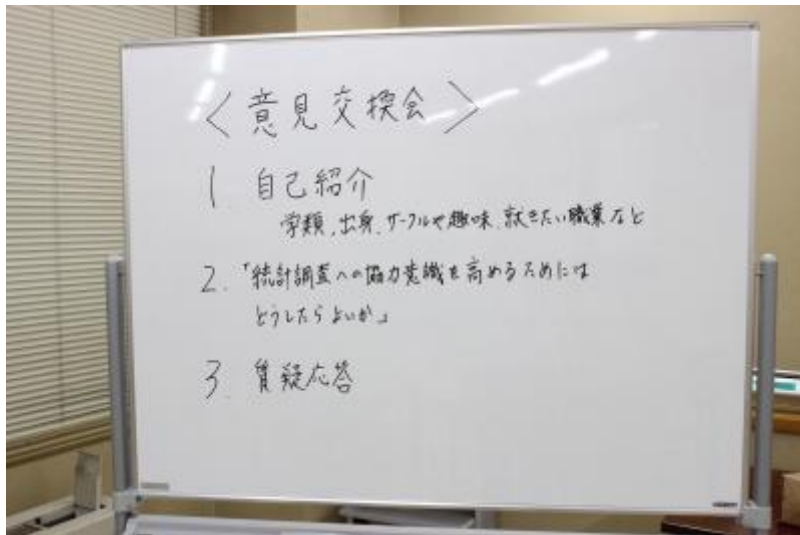 ＜意見交換会＞
1. 自己紹介
学類、出身、サークルや趣味、就きたい職業など
2.「統計調査への協力意識を高めるためには
どうしたらよいか」
3. 質疑応答